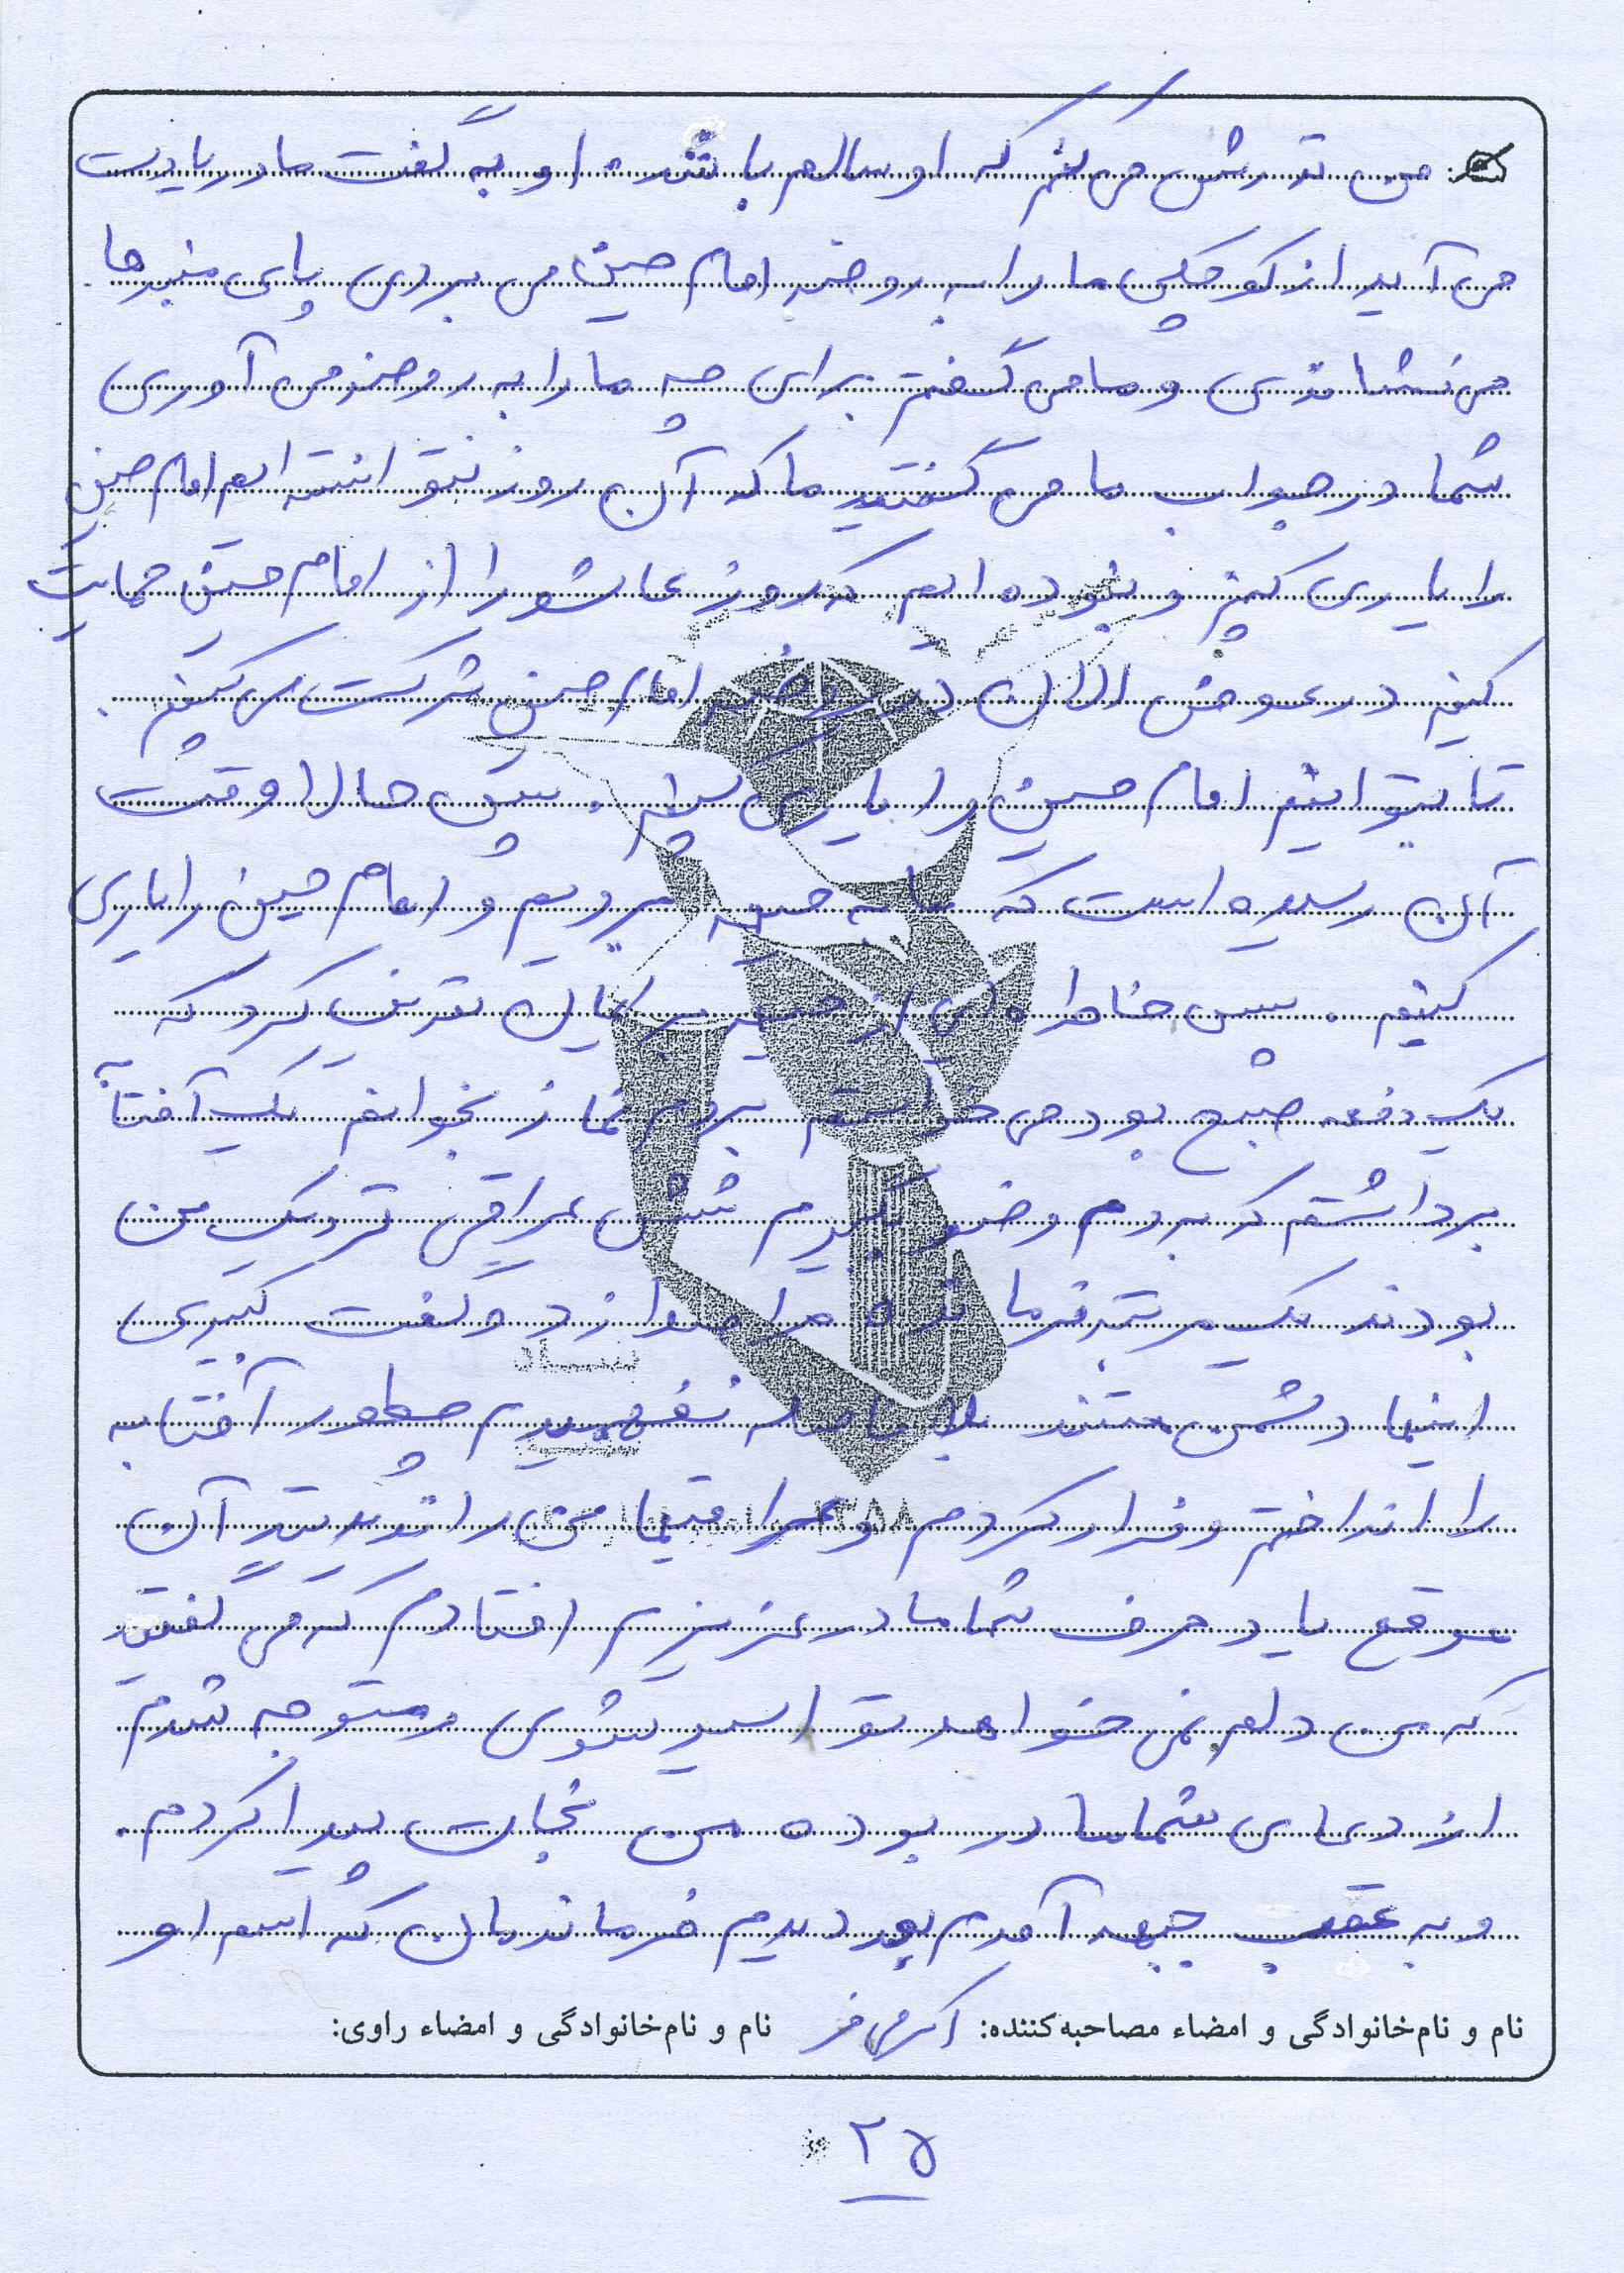 من نذرش می کنم که او سالم باشد. او به گفت مادر یادت
می آید از کوچکی ما را به روضه امام حسین می بردی پای منبرها
می نشاندی و ما می گفتم برای چه ما را به روضه می آوری
شما در جواب ما می گفتید ما که آن روز نتوانسته ایم امام حسین
را یاری کنیم و نبوده ایم که روز عاشورا از امام حسین حمایت
کنیم در عوض الان در روضه امام حسین شرکت می کنیم.
تا بتوانیم امام حسین را یاری کنیم. پس حالا وقت
آن رسیده است که ما به جبهه برویم و امام حسین را یاری
کنیم. سپس خاطره ای از جبهه برایمان تعریف کرد که
یک دفعه صبح بود می خواستم بروم نماز بخوانم یک آفتابه
برداشتم که بروم وضو بگیرم شش عراقی نزدیک من
بودند یک مرتبه فرمانده مرا صدا زد و گفت کبیری
اینها دشمن هستند بلا فاصله نفهمیدم چطور آفتابه
را انداختم و فرار کردم و عراقیها من را ندیدند آن
موقع یاد حرف شما مادر عزیزم افتادم که می گفتید
که من دلم نمی خواهد تو اسیر بشوی و متوجه شدم
از دعای شما مادر بوده من نجات پیدا کردم.
و به عقب جبهه آمدم دیدم فرماندمان که اسم او
نام و نام‌خانوادگی و امضاء مصاحبه‌کننده: نام و نام‌خانوادگی و امضاء راوی:
۲۵